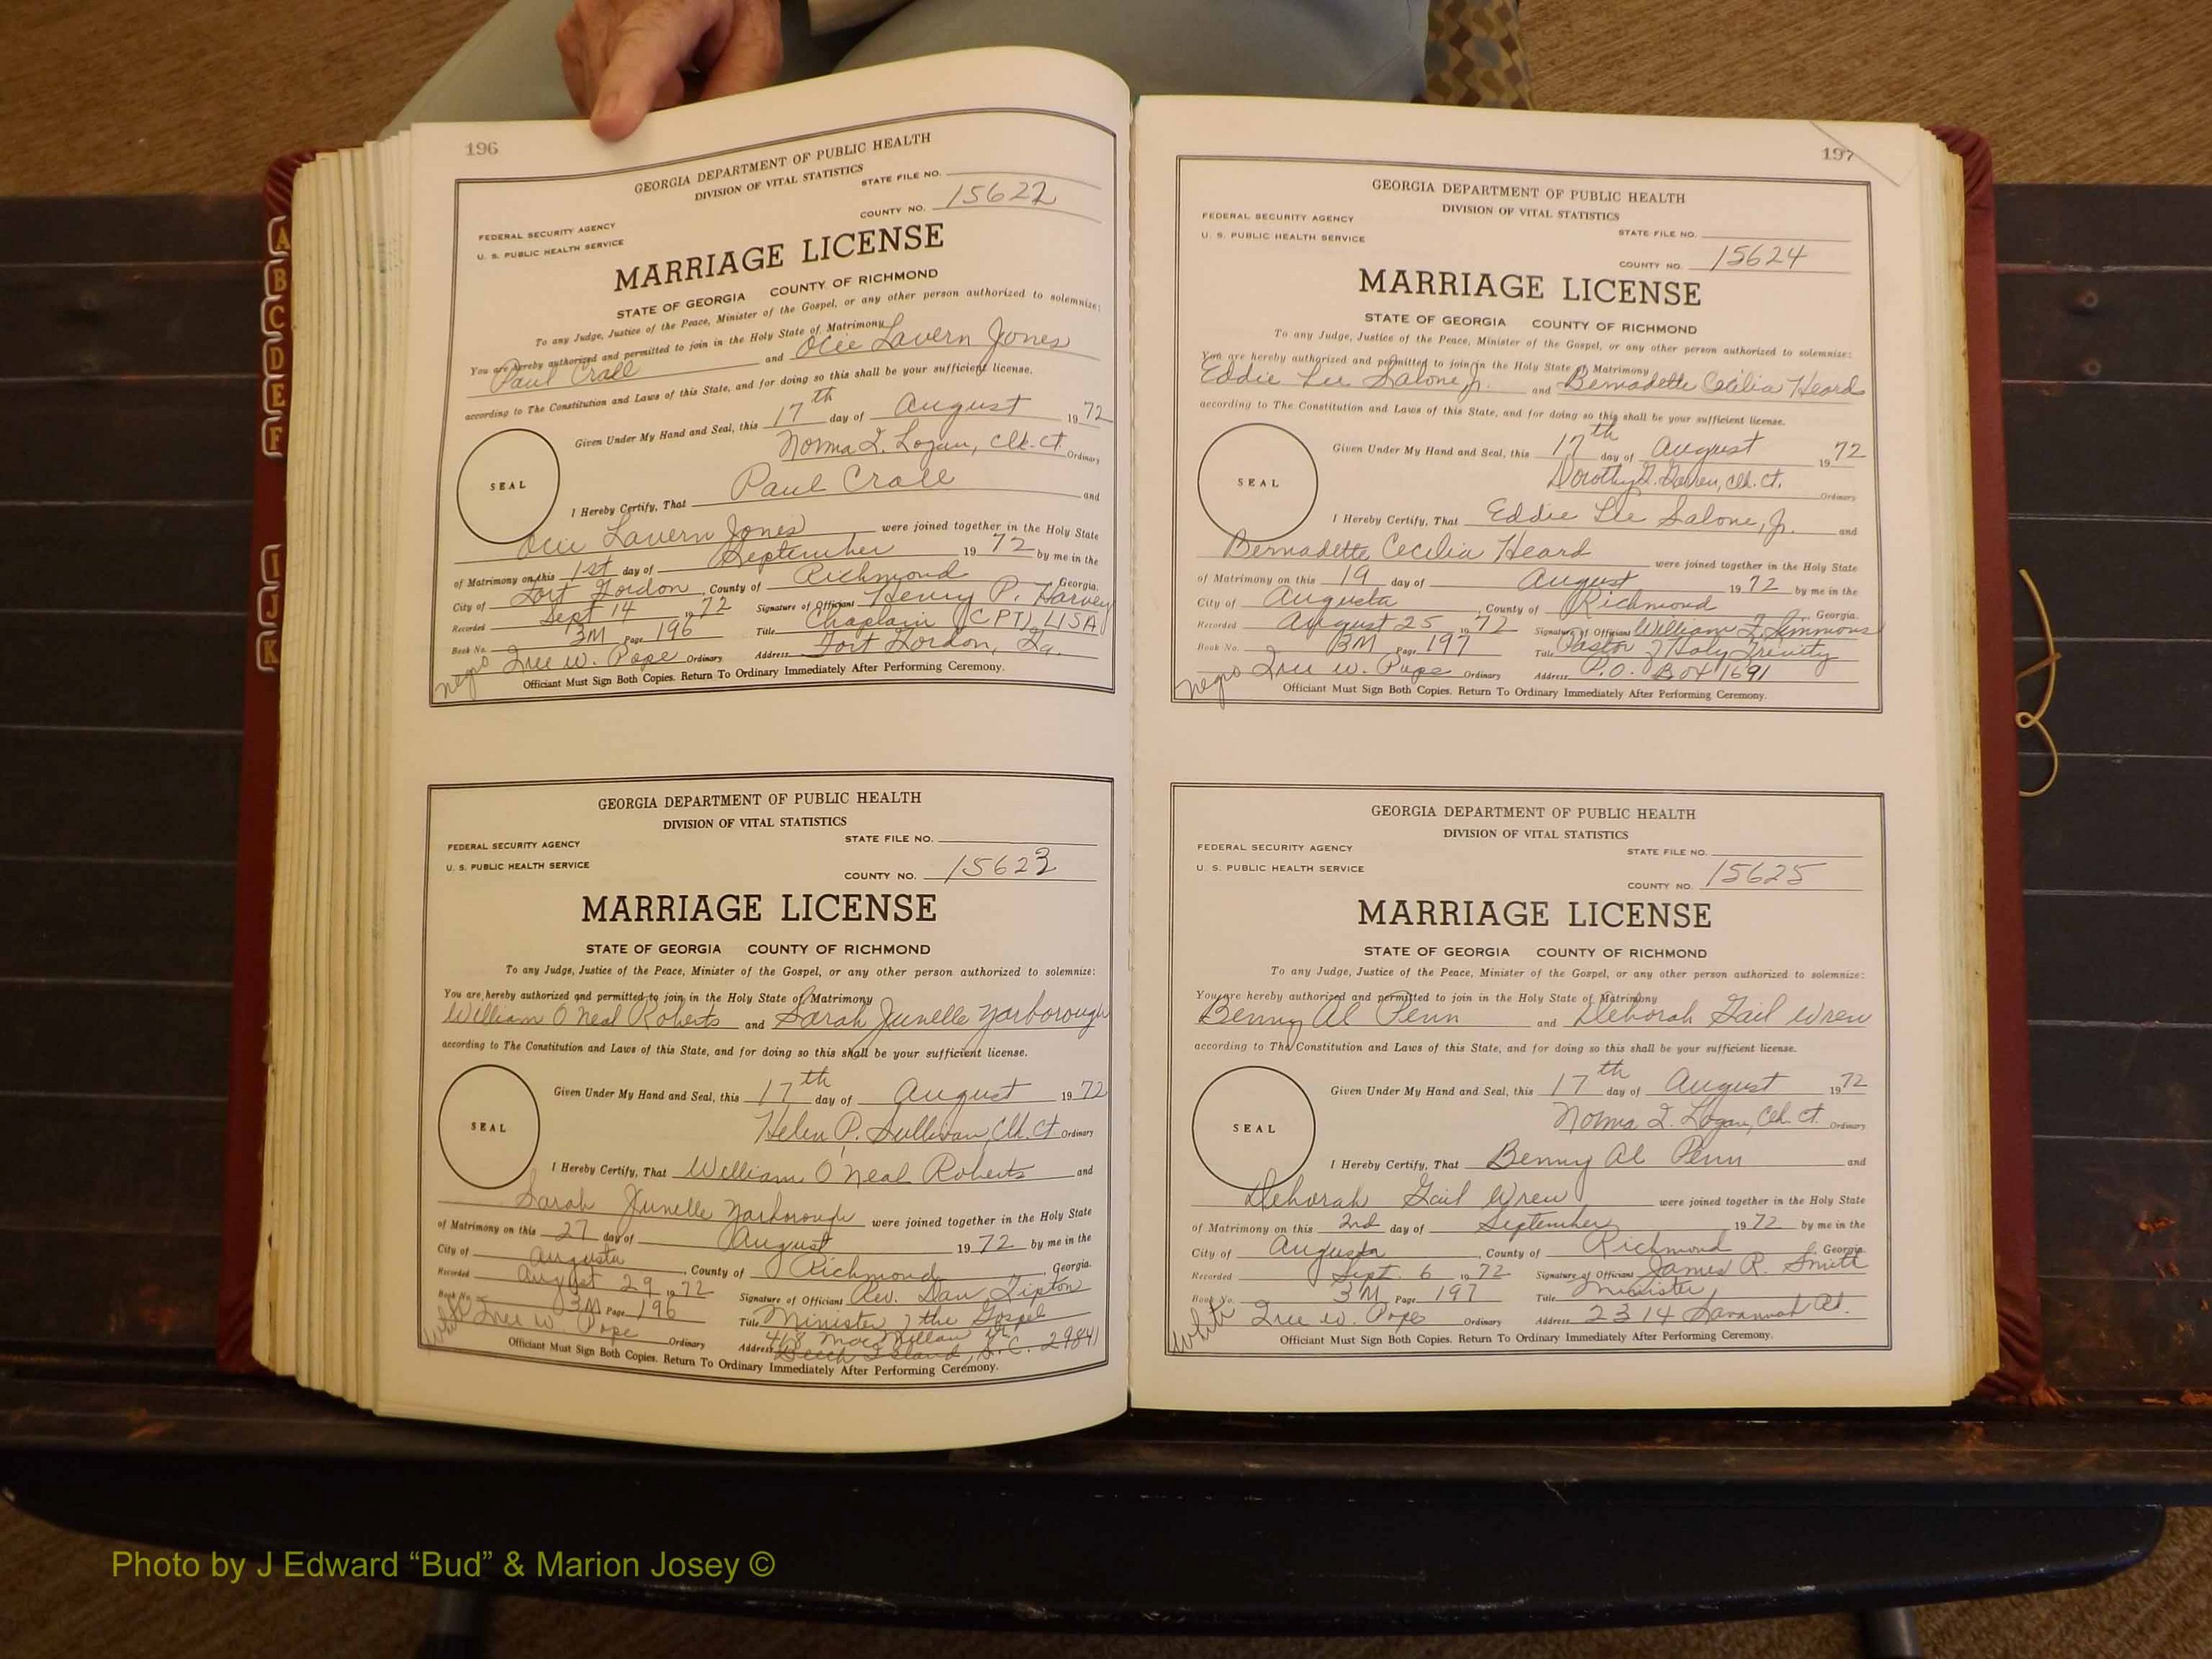 196
GEORGIA DEPARTMENT OF PUBLIC HEALTH
DIVISION OF VITAL STATISTICS
STATE FILE NO.
COUNTY NO. 15622
FEDERAL SECURITY AGENCY
U. S. PUBLIC HEALTH SERVICE
MARRIAGE LICENSE
STATE OF GEORGIA COUNTY OF RICHMOND
To any Judge, Justice of the Peace, Minister of the Gospel, or any other person authorized to solemnize:
You are hereby authorized and permitted to join in the Holy State of Matrimony
Paul Crall and Ocie Lavern Jones
according to The Constitution and Laws of this State, and for doing so this shall be your sufficient license.
Given Under My Hand and Seal, this 17th day of August 1972
Norma I. Logan, Clk. Ct. Ordinary
SEAL
I Hereby Certify, That Paul Crall and
Ocie Lavern Jones were joined together in the Holy State
of Matrimony on this 1st day of September 1972 by me in the
City of Fort Gordon, County of Richmond Georgia.
Recorded Sept 14 1972 Signature of Officiant Henry P. Harvey
Book No. 3M Page 196 Title Chaplain (CPT) USA
Iree W. Pope Ordinary Address Fort Gordon, Ga.
negro
Officiant Must Sign Both Copies. Return To Ordinary Immediately After Performing Ceremony.
GEORGIA DEPARTMENT OF PUBLIC HEALTH
DIVISION OF VITAL STATISTICS
FEDERAL SECURITY AGENCY
U. S. PUBLIC HEALTH SERVICE
STATE FILE NO.
COUNTY NO. 15623
MARRIAGE LICENSE
STATE OF GEORGIA COUNTY OF RICHMOND
To any Judge, Justice of the Peace, Minister of the Gospel, or any other person authorized to solemnize:
You are hereby authorized and permitted to join in the Holy State of Matrimony
William O'Neal Roberts and Sarah Junelle Yarborough
according to The Constitution and Laws of this State, and for doing so this shall be your sufficient license.
Given Under My Hand and Seal, this 17th day of August 1972
Helen P. Sullivan, Clk. Ct Ordinary
SEAL
I Hereby Certify, That William O'Neal Roberts and
Sarah Junelle Yarborough were joined together in the Holy State
of Matrimony on this 27 day of August 1972 by me in the
City of Augusta, County of Richmond, Georgia.
Recorded August 29 1972 Signature of Officiant Rev. Dan Tipton
Book No. 3M Page 196 Title Minister of the Gospel
Iree W. Pope Ordinary Address 468 MacMillan Dr
Beech Island, S.C. 29841
white
Officiant Must Sign Both Copies. Return To Ordinary Immediately After Performing Ceremony.
197
GEORGIA DEPARTMENT OF PUBLIC HEALTH
DIVISION OF VITAL STATISTICS
FEDERAL SECURITY AGENCY
U. S. PUBLIC HEALTH SERVICE
STATE FILE NO.
COUNTY NO. 15624
MARRIAGE LICENSE
STATE OF GEORGIA COUNTY OF RICHMOND
To any Judge, Justice of the Peace, Minister of the Gospel, or any other person authorized to solemnize:
You are hereby authorized and permitted to join in the Holy State of Matrimony
Eddie Lee Salone, Jr. and Bernadette Cecilia Heard
according to The Constitution and Laws of this State, and for doing so this shall be your sufficient license.
Given Under My Hand and Seal, this 17th day of August 1972
Dorothy Clk. Ct. Ordinary
SEAL
I Hereby Certify, That Eddie Lee Salone, Jr. and
Bernadette Cecilia Heard were joined together in the Holy State
of Matrimony on this 19 day of August 1972 by me in the
City of Augusta, County of Richmond, Georgia.
Recorded August 25 1972 Signature of Officiant William J. Simmons
Book No. 3M Page 197 Title Pastor of Holy Trinity
Iree W. Pope Ordinary Address P.O. Box 1691
negro
Officiant Must Sign Both Copies. Return To Ordinary Immediately After Performing Ceremony.
GEORGIA DEPARTMENT OF PUBLIC HEALTH
DIVISION OF VITAL STATISTICS
FEDERAL SECURITY AGENCY
U. S. PUBLIC HEALTH SERVICE
STATE FILE NO.
COUNTY NO. 15625
MARRIAGE LICENSE
STATE OF GEORGIA COUNTY OF RICHMOND
To any Judge, Justice of the Peace, Minister of the Gospel, or any other person authorized to solemnize:
You are hereby authorized and permitted to join in the Holy State of Matrimony
Benny Al Penn and Deborah Gail Wren
according to The Constitution and Laws of this State, and for doing so this shall be your sufficient license.
Given Under My Hand and Seal, this 17th day of August 1972
Norma I. Logan, Clk. Ct. Ordinary
SEAL
I Hereby Certify, That Benny Al Penn and
Deborah Gail Wren were joined together in the Holy State
of Matrimony on this 2nd day of September 1972 by me in the
City of Augusta, County of Richmond, Georgia.
Recorded Sept. 6 1972 Signature of Officiant James R. Smith
Book No. 3M Page 197 Title Minister
Iree W. Pope Ordinary Address 2314 Savannah Rd.
white
Officiant Must Sign Both Copies. Return To Ordinary Immediately After Performing Ceremony.
A
B
C
D
E
F
I
J
K
Photo by J Edward “Bud” & Marion Josey ©